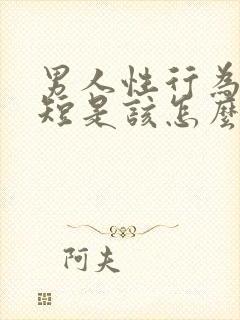 男人性行為
短是該怎麼
阿夫